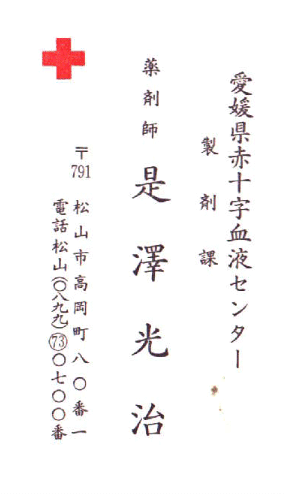 愛媛県赤十字血液センター
製剤課
薬剤師
是澤光治
〒791
松山市高岡町八〇番一
電話松山(〇八九九)73〇七〇〇番